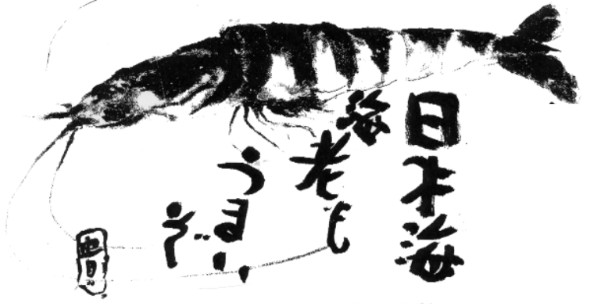 日本海
海老も
うまい
ぞ